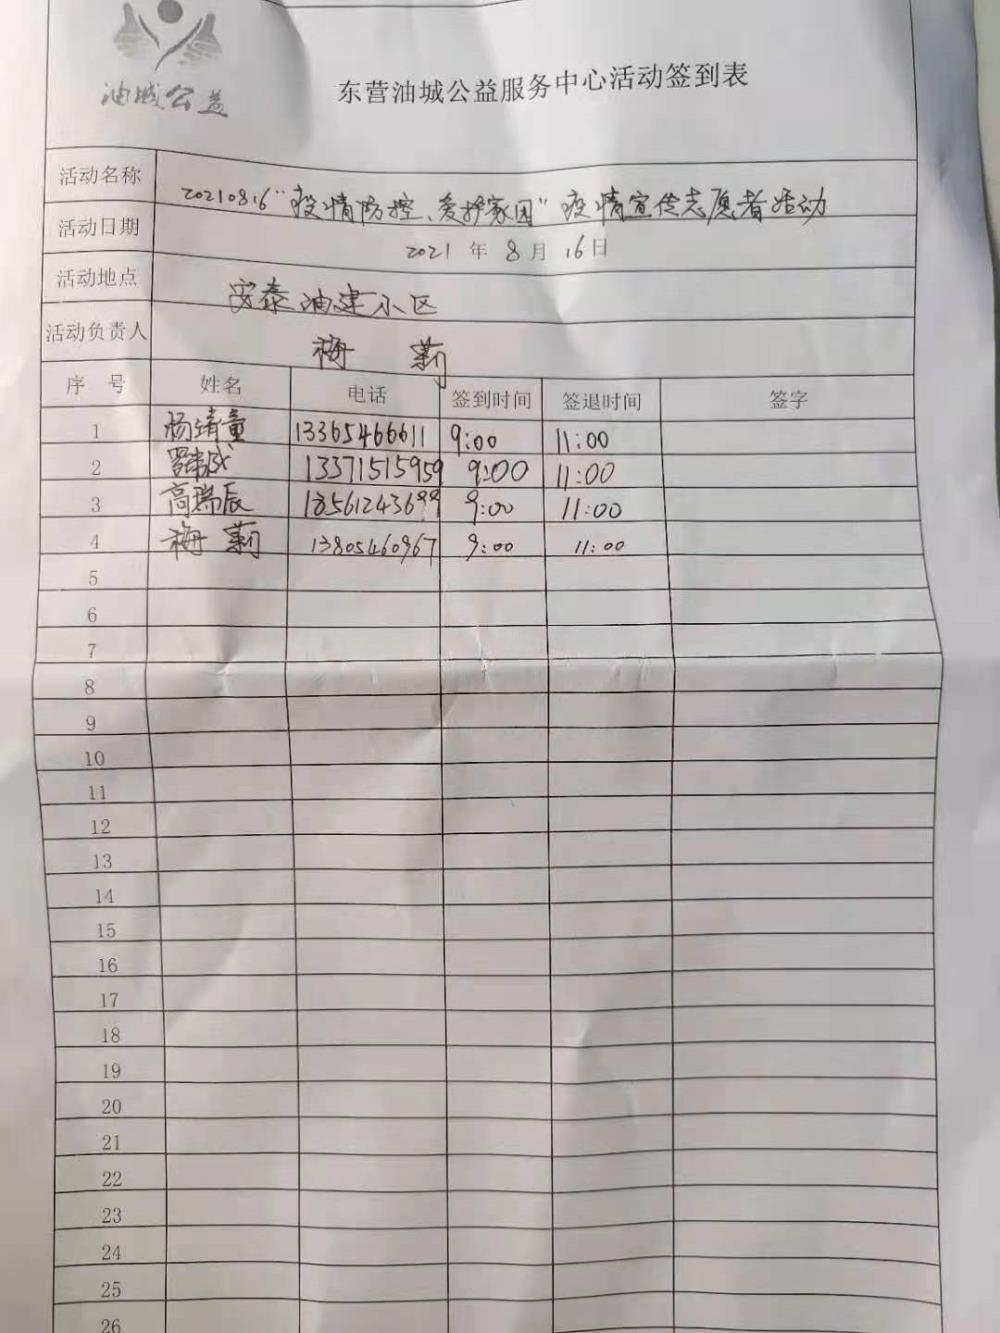 油城公益
东营油城公益服务中心活动签到表
活动名称 20210816"疫情防控、爱护家园"疫情宣传志愿者活动
活动日期 2021 年 8 月 16 日
活动地点 安泰油建小区
活动负责人 梅 莉
序 号 姓名 电话 签到时间 签退时间 签字
1 杨靖童 13365466611 9:00 11:00
2 13371515959 9:00 11:00
3 高瑞辰 18561243699 9:00 11:00
4 梅 莉 13805460967 9:00 11:00
5
6
7
8
9
10
11
12
13
14
15
16
17
18
19
20
21
22
23
24
25
26